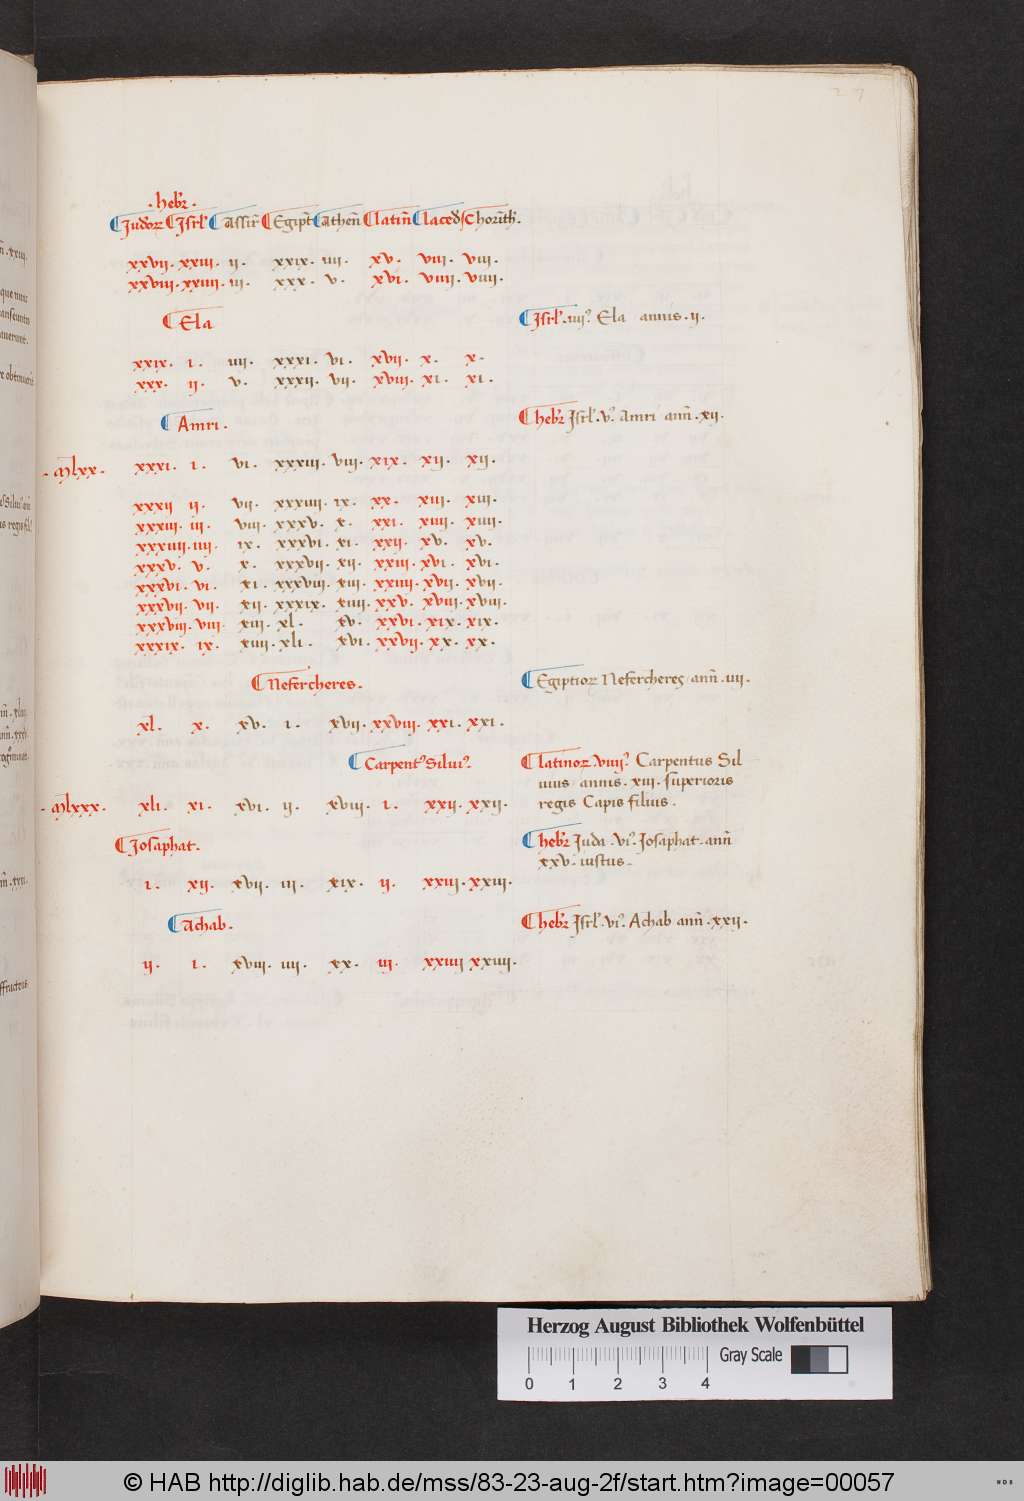 27
.hebr̄.
Judoꝝ Isrl' Assir̄ Egipt̄ Athen̄ latin̄ lacedꝭ Chorīth.
xxvii. xxiii. ii. xxix. iiii. xv. viii. viii.
xxviii. xxiiii. iii. xxx. v. xvi. viiii. viiii.
Ela
Isrl'. iiii.⁹ Ela annis. ii.
xxix. i. iiii. xxxi. vi. xvii. x. x.
xxx. ii. v. xxxii. vii. xviii. xi. xi.
Amri.
hebr̄ Isrl'. v.⁹ Amri ann̄. xii.
. mlxx. xxxi. i. vi. xxxiii. viii. xix. xii. xii.
xxxii ii. vii. xxxiiii. ix. xx. xiii. xiii.
xxxiii. iii. viii. xxxv. x. xxi. xiiii. xiiii.
xxxiiii. iiii. ix. xxxvi. xi. xxii. xv. xv.
xxxv. v. x. xxxvii. xii. xxiii. xvi. xvi.
xxxvi. vi. xi. xxxviii. xiii. xxiiii. xvii. xvii.
xxxvii. vii. xii. xxxix. xiiii. xxv. xviii. xviii.
xxxviii. viii. xiii. xl. xv. xxvi. xix. xix.
xxxix. ix. xiiii. xli. xvi. xxvii. xx. xx.
Nefercheres.
Egiptioꝝ Nefercheres ann̄. iiii.
xl. x. xv. i. xvii. xxviii. xxi. xxi.
Carpent⁹ Silui⁹.
latinoꝝ viiii⁹ Carpentus Sil
uius annis. xiii. superioris
regis Capis filius.
. mlxxx. xli. xi. xvi. ii. xviii. i. xxii. xxii.
Josaphat.
hebr̄ Juda. vi.⁹ Josaphat. ann̄
xxv. iustus.
i. xii. xvii. iii. xix. ii. xxiii. xxiii.
Achab.
hebr̄ Isrl'. vi.⁹ Achab ann̄. xxii.
ii. i. xviii. iiii. xx. iii. xxiiii xxiiii.
Herzog August Bibliothek Wolfenbüttel
Gray Scale
0 1 2 3 4
© HAB http://diglib.hab.de/mss/83-23-aug-2f/start.htm?image=00057